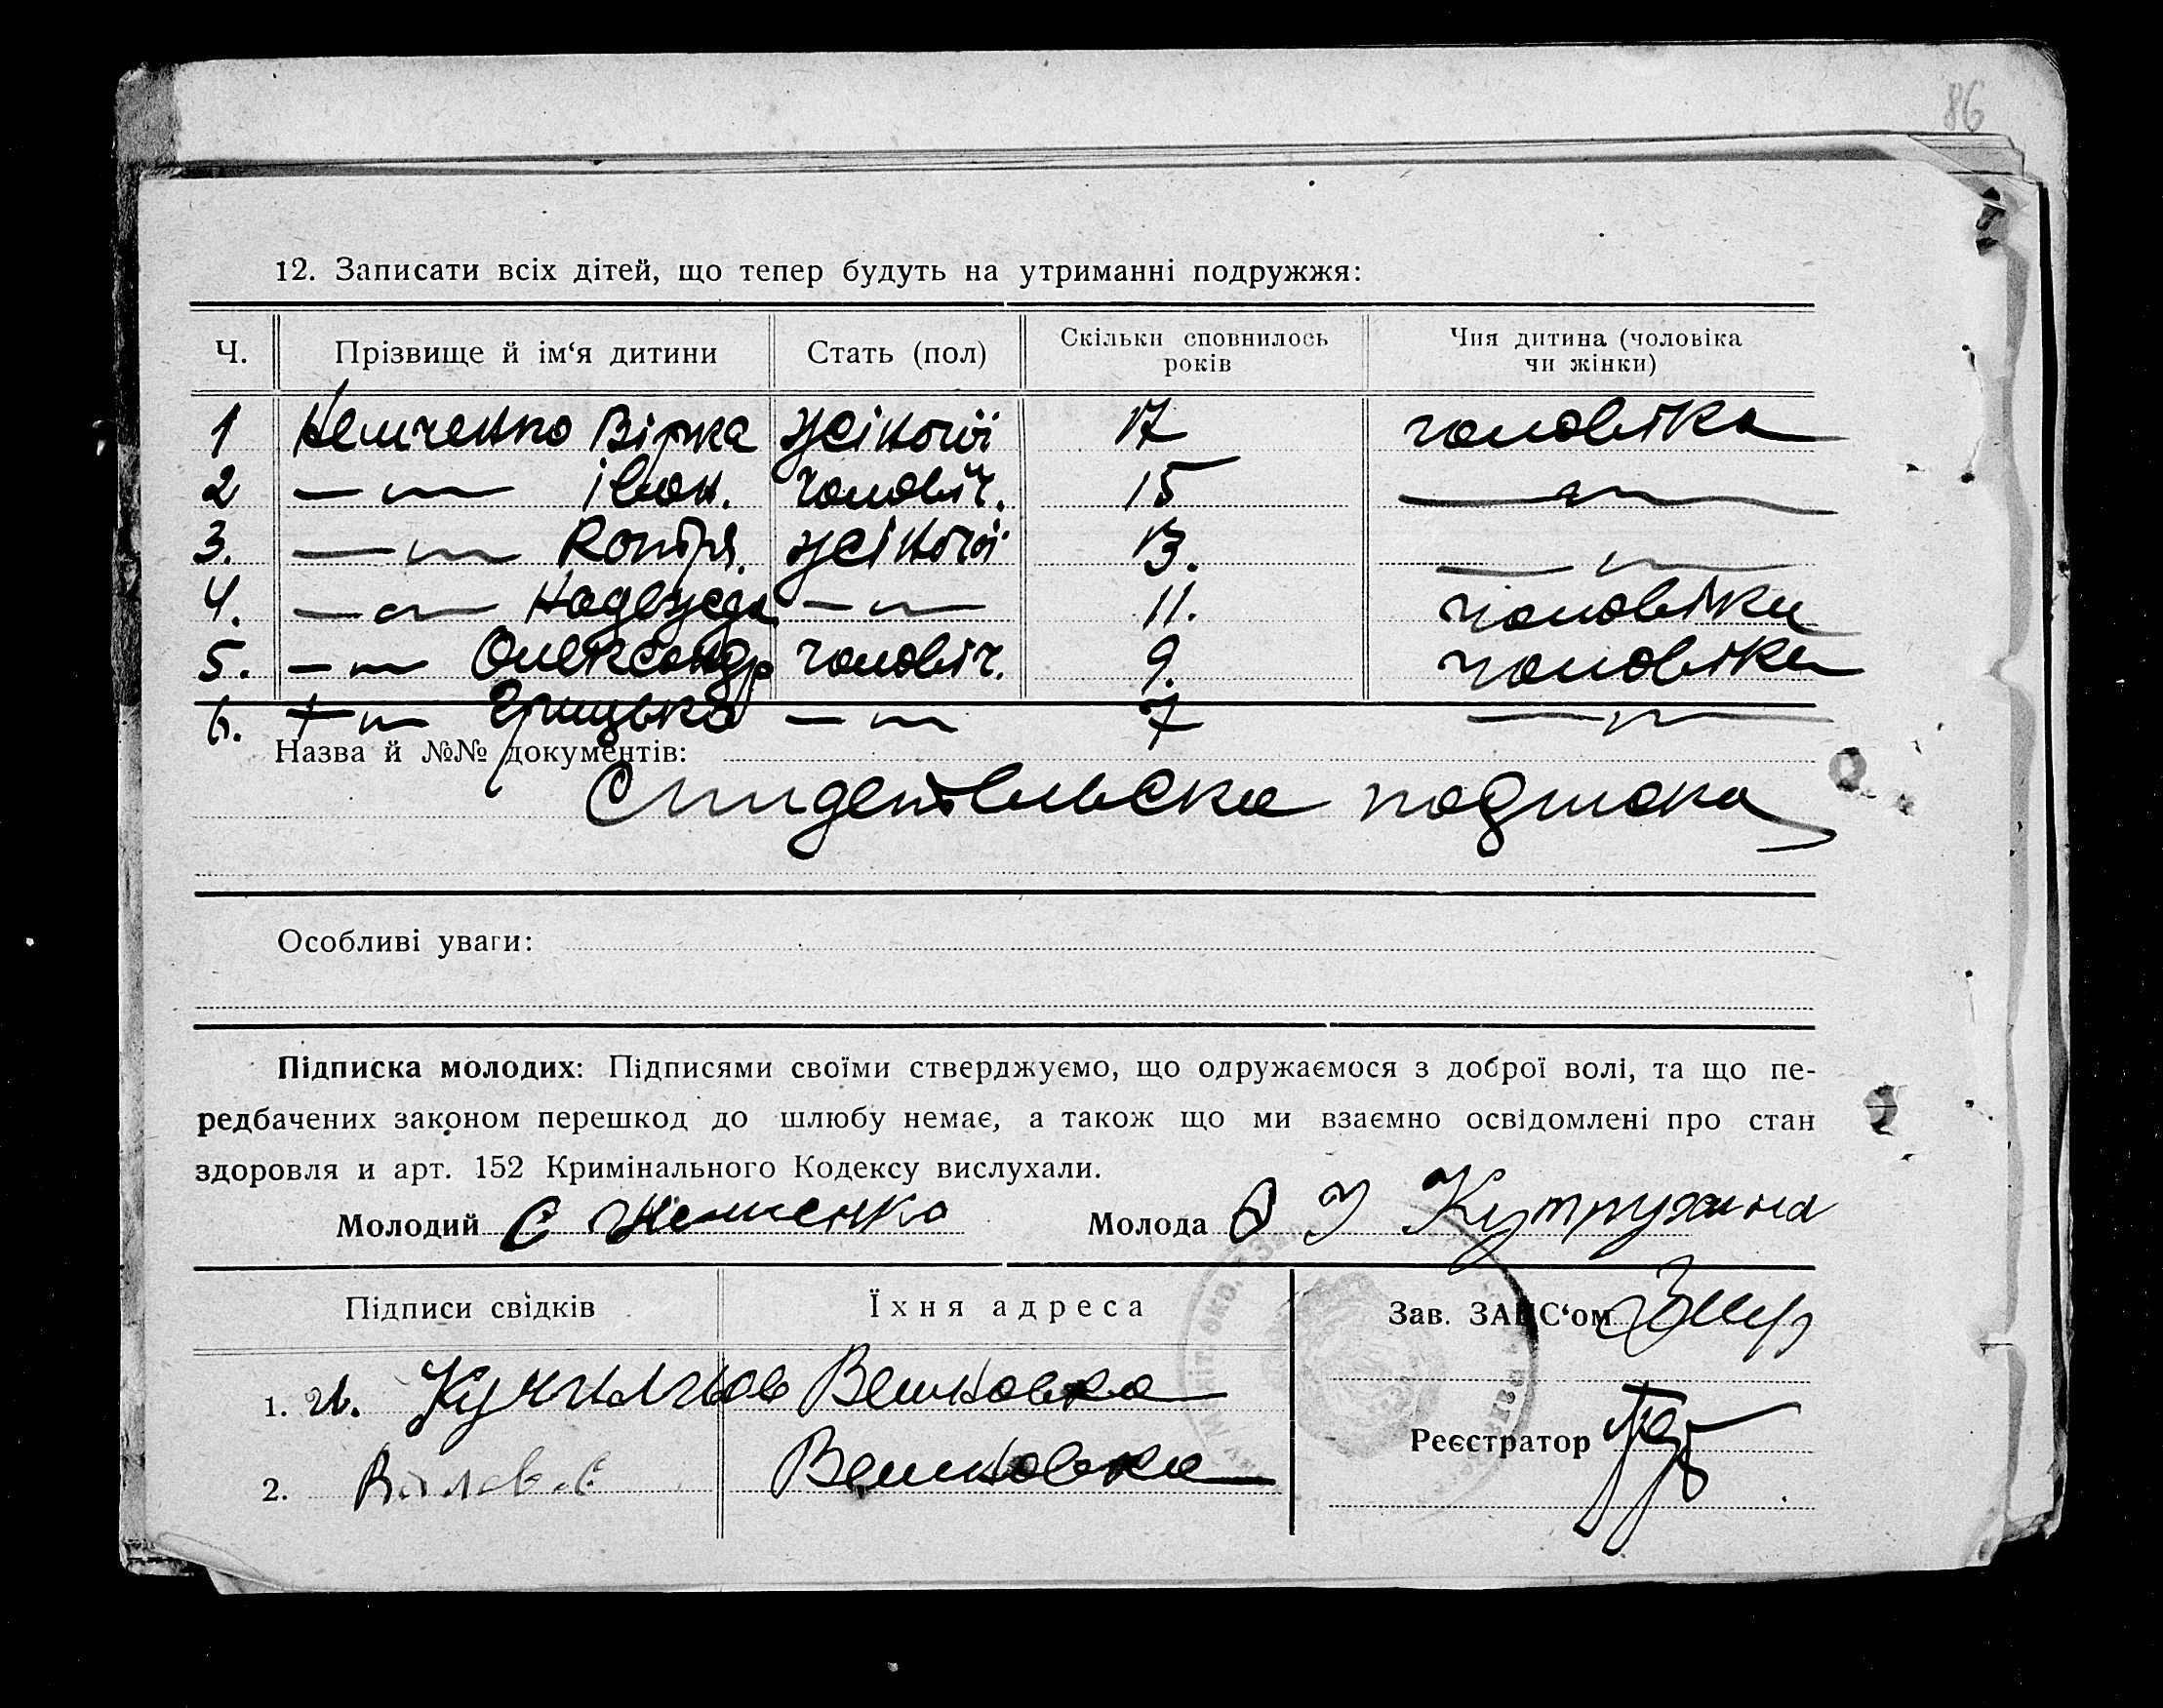 86
12. Записати всіх дітей, що тепер будуть на утриманні подружжя:
Ч. Прізвище й ім‘я дитини Стать (пол) Скільки сповнилось років Чия дитина (чоловіка чи жінки)
1 Немченко Вірка жіночої 17 чоловіка
2 — " — Іван. чоловіч. 15 — " —
3. — " — жіночої 13. — " —
4. — " — Надежда — " — 11. чоловіка
5. — " — Олександр чоловіч. 9. чоловіка
6. — " — Грицько — " — 7 — " —
Назва й №№ документів:
подписка
Особливі уваги:
Підписка молодих: Підписями своїми стверджуємо, що одружаємося з доброї волі, та що пе-
редбачених законом перешкод до шлюбу немає, а також що ми взаємно освідомлені про стан
здоровля и арт. 152 Кримінального Кодексу вислухали.
Молодий С Немченко Молода
Підписи свідків Їхня адреса Зав. ЗАГС‘ом
1. И.
Реєстратор
2.